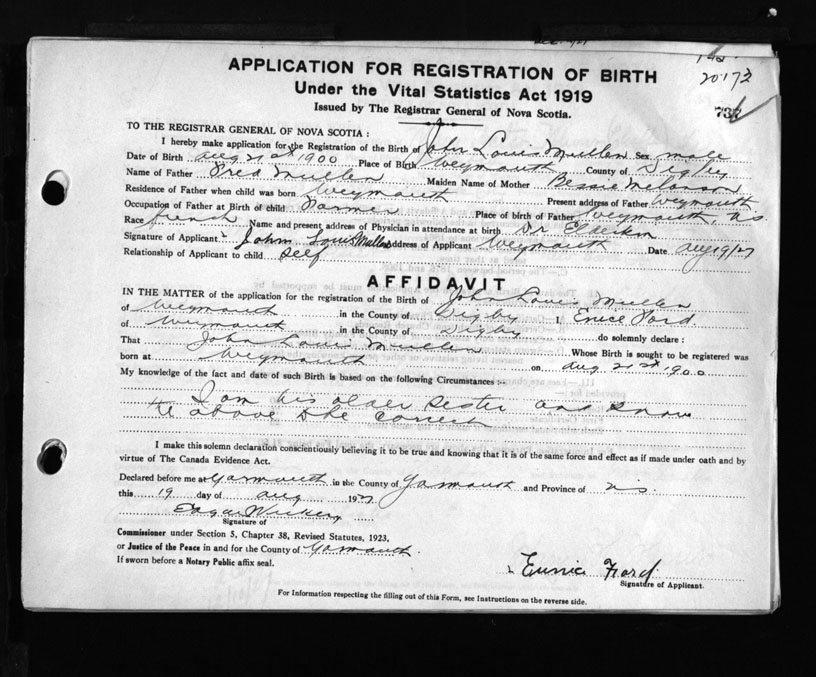 20173
737
APPLICATION FOR REGISTRATION OF BIRTH
Under the Vital Statistics Act 1919
Issued by The Registrar General of Nova Scotia.
TO THE REGISTRAR GENERAL OF NOVA SCOTIA :
I hereby make application for the Registration of the Birth of John Louis Mullen Sex male
Date of Birth Aug 21st 1900 Place of Birth Weymouth County of Digby
Name of Father Fred Mullen Maiden Name of Mother Bessie Melanson
Residence of Father when child was born Weymouth Present address of Father Weymouth
Occupation of Father at Birth of child Farmer Place of birth of Father Weymouth, N.S.
Race French Name and present address of Physician in attendance at birth Dr Elderkin
Signature of Applicant John Louis Mullen Address of Applicant Weymouth Date Aug 19/27
Relationship of Applicant to child Self
AFFIDAVIT
IN THE MATTER of the application for the registration of the Birth of John Louis Mullen
of Weymouth in the County of Digby I, Enice Ford
of Weymouth in the County of Digby do solemnly declare :
That John Louis Mullen Whose Birth is sought to be registered was
born at Weymouth on Aug 21st 1900
My knowledge of the fact and date of such Birth is based on the following Circumstances :-
I am his older sester and know
the above to be correct
I make this solemn declaration conscientiously believing it to be true and knowing that it is of the same force and effect as if made under oath and by
virtue of The Canada Evidence Act.
Declared before me at Yarmouth in the County of Yarmouth and Province of N.S.
this 19 day of Aug 1927
Signature of
Commissioner under Section 5, Chapter 38, Revised Statutes, 1923.
or Justice of the Peace in and for the County of Yarmouth
If sworn before a Notary Public affix seal.
Eunice Ford
Signature of Applicant.
For Information respecting the filling out of this Form, see Instructions on the reverse side.